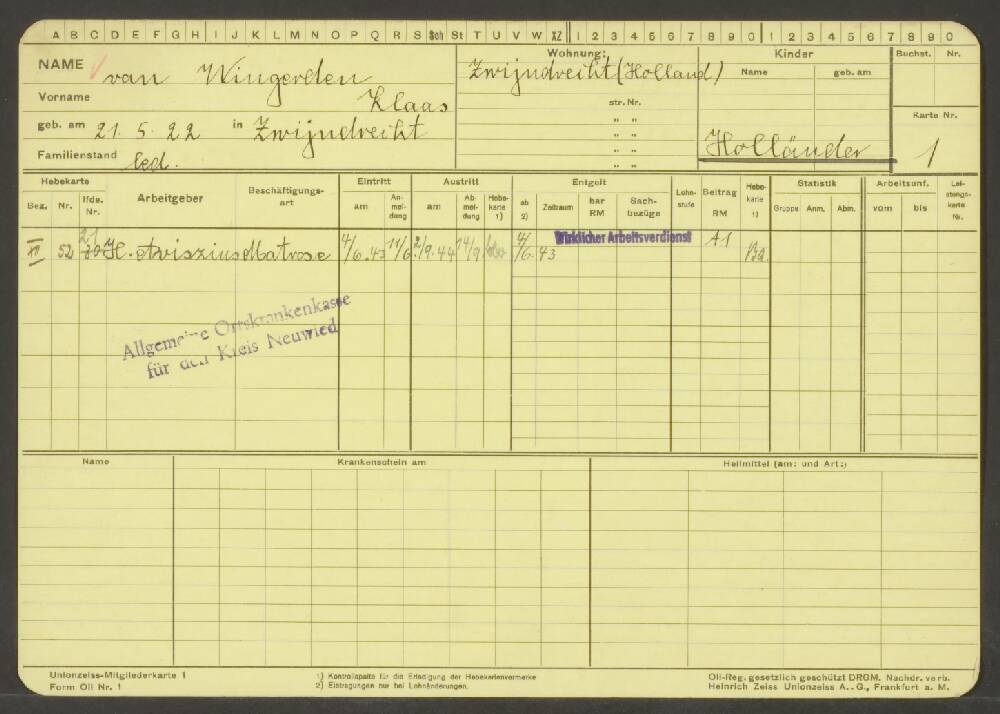 A B C D E F G H I J K L M N O P Q R S Sch St T U V W XZ 1 2 3 4 5 6 7 8 9 0 1 2 3 4 5 6 7 8 9 0
NAME van Wingerden
Vorname Klaas
geb. am 21. 5. 22 in Zwijndrecht
Familienstand led.
Wohnung:
Zwijndrecht (Holland)
str. Nr.
" "
" "
" "
" "
Kinder
Name geb. am
Holländer
Buchst. Nr.
Karte Nr.
1
Hebekarte
Bez. Nr. lfde. Nr.
Arbeitgeber
Beschäftigungs-
art
Eintritt
am An-
mel-
dung
Austritt
am Ab-
mel-
dung Hebe-
karte
1)
Entgelt
ab
2) Zeitraum bar
RM Sach-
bezüge
Lohn-
stufe
Beitrag
RM
Hebe-
karte
1)
Statistik
Gruppe Anm. Abm.
Arbeitsunf.
vom bis
Lei-
stungs-
karte
Nr.
Wirklicher Arbeitsverdienst
21
XI 52 30 H. Aviszius Matrose 4/6. 43 11/6 2/9. 44 14/9 4/6. 43 A1
Allgemeine Ortskrankenkasse
für den Kreis Neuwied
Name Krankenschein am Heilmittel (am: und Art:)
Unionzeiss-Mitgliederkarte 1
Form Oll Nr. 1
1) Kontrollspalte für die Erledigung der Hebekartenvermerke
2) Eintragungen nur bei Lohnänderungen.
Oll-Reg. gesetzlich geschützt DRGM. Nachdr. verb.
Heinrich Zeiss Unionzeiss A.-G., Frankfurt a. M.